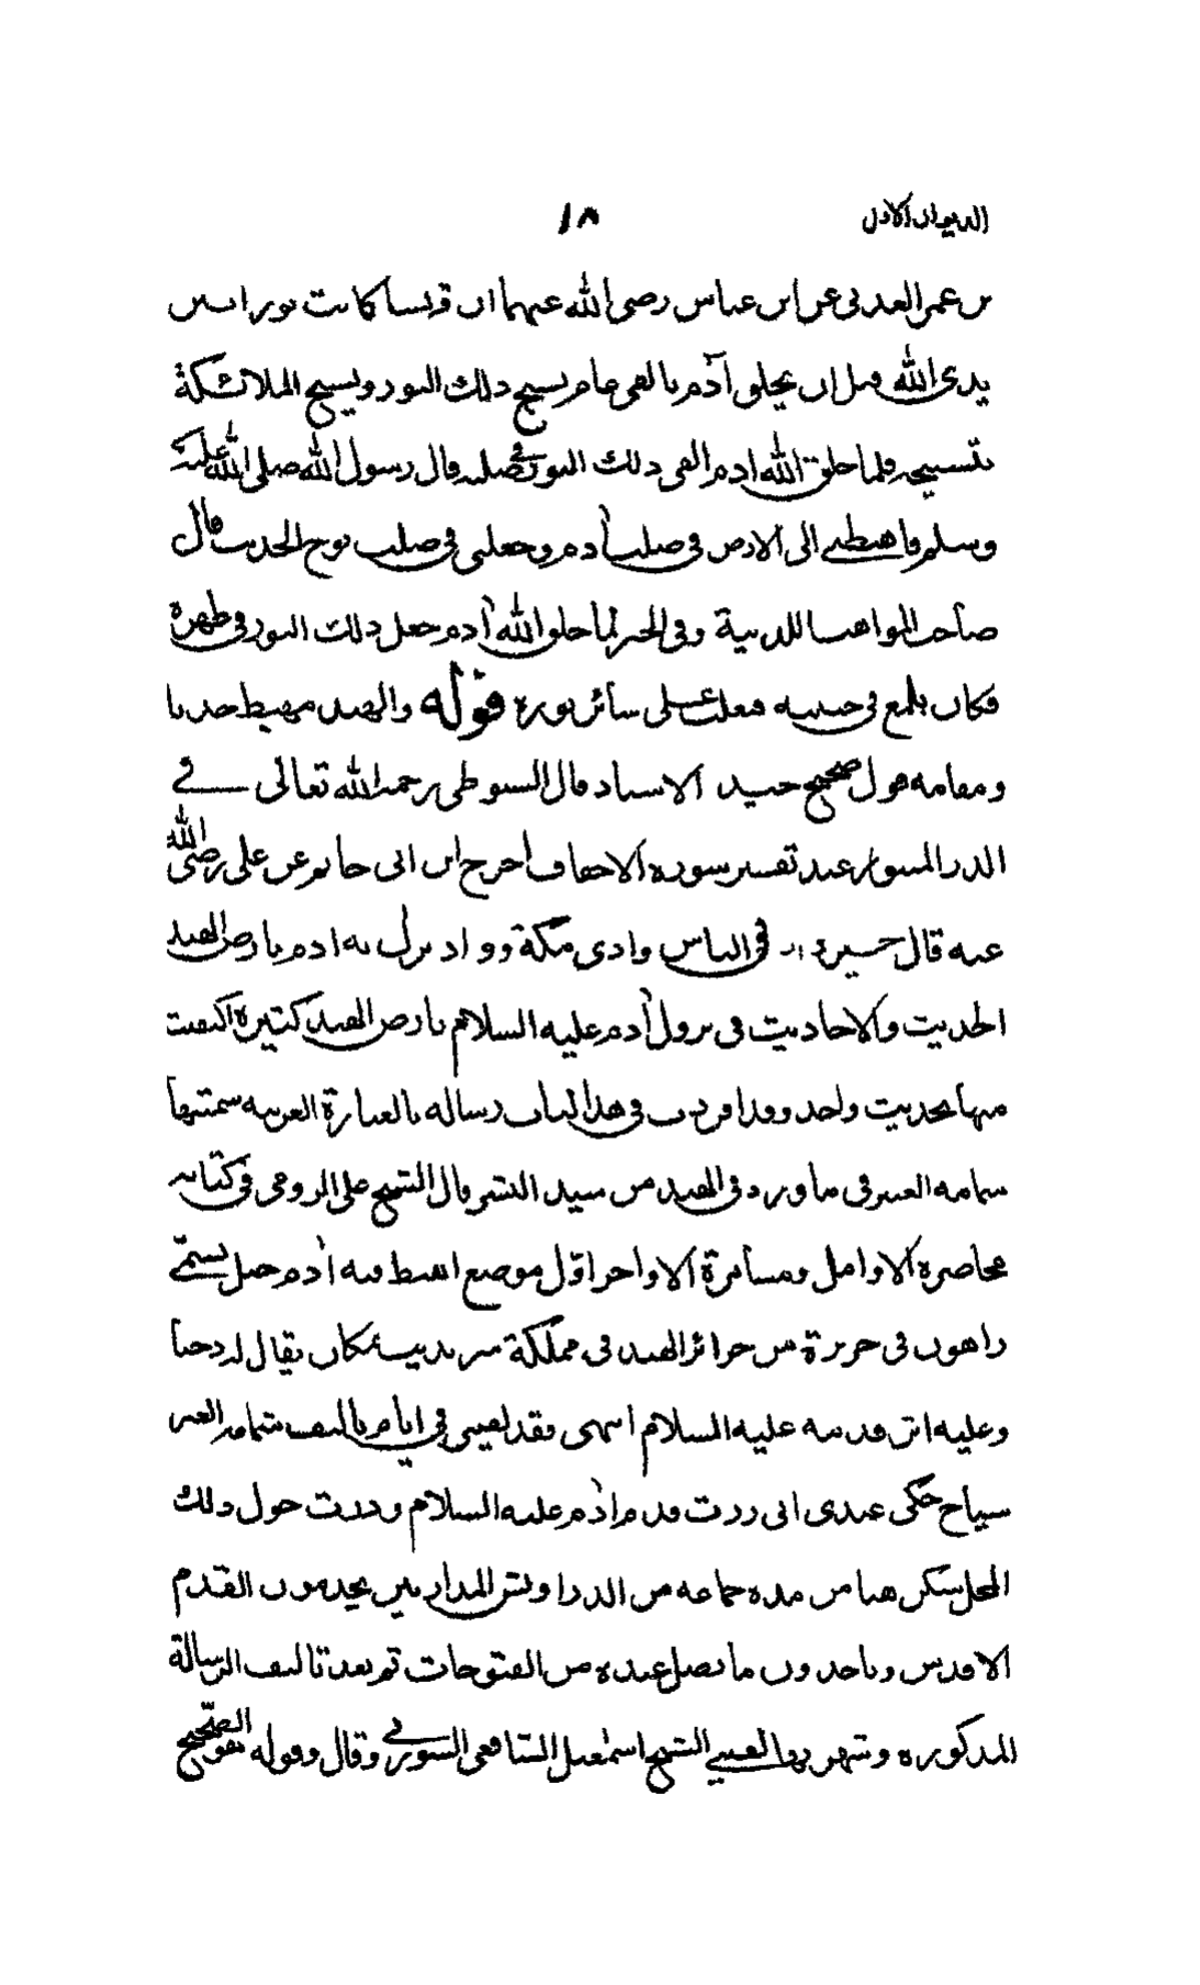 الديوان الاول ١٨
بن عمر العدني عن ابن عباس رضي الله عنهما ان قريشا كانت نورا بين
يدي الله قبل ان يخلق آدم بالفي عام يسبح ذلك النور ويسبح الملائكة
بتسبيحه فلما خلق الله ادم القى ذلك النور في صلبه قال رسول الله صلى الله عليه
وسلم فاهبطني الى الارض في صلب آدم وجعلني في صلب نوح الحديث قال
صاحب المواهب اللدنية وفي الخبر لما خلق الله آدم جعل ذلك النور في ظهره
فكان يلمع في جبينه فيغلب على سائر نوره قوله والهند مهبط جدنا
ومقامه قول صحيح جيد الاسناد قال السيوطي رحمه الله تعالى في
الدر المنثور عند تفسير سورة الاحقاف اخرج ابن ابي حاتم عن علي رضي الله
عنه قال خير في الناس وادي مكة وواد نزل به ادم بارض الهند
الحديث والاحاديث في نزول آدم عليه السلام بارض الهند كثيرة اكتفيت
منها بحديث واحد وقد افردت في هذا الباب رسالة بالعبارة العربية سميتها
شمامة العنبر في ما ورد في الهند من سيد البشر قال الشيخ علي الرومي في كتابه
محاضرة الاوائل ومسامرة الاواخر اول موضع اهبط فيه آدم جبل يسمى
راهون في جزيرة من جزائر الهند في مملكة سرنديب بمكان يقال له دحنا
وعليه اثر قدميه عليه السلام انتهى فقد لقيني في ايام تاليف شمامة العنبر
سياح حكى عندي اني زرت قدم آدم عليه السلام ودرت حول ذلك
المحل يسكن هنا من مدة جماعة من الدراويش المداريين يخدمون القدم
الاقدس وياخذون ما يصل عنده من الفتوحات ثم بعد تاليف الرسالة
المذكورة وشهرتها لقيني الشيخ اسمعيل الشافعي السورتي وقال وقوله هو الصحيح